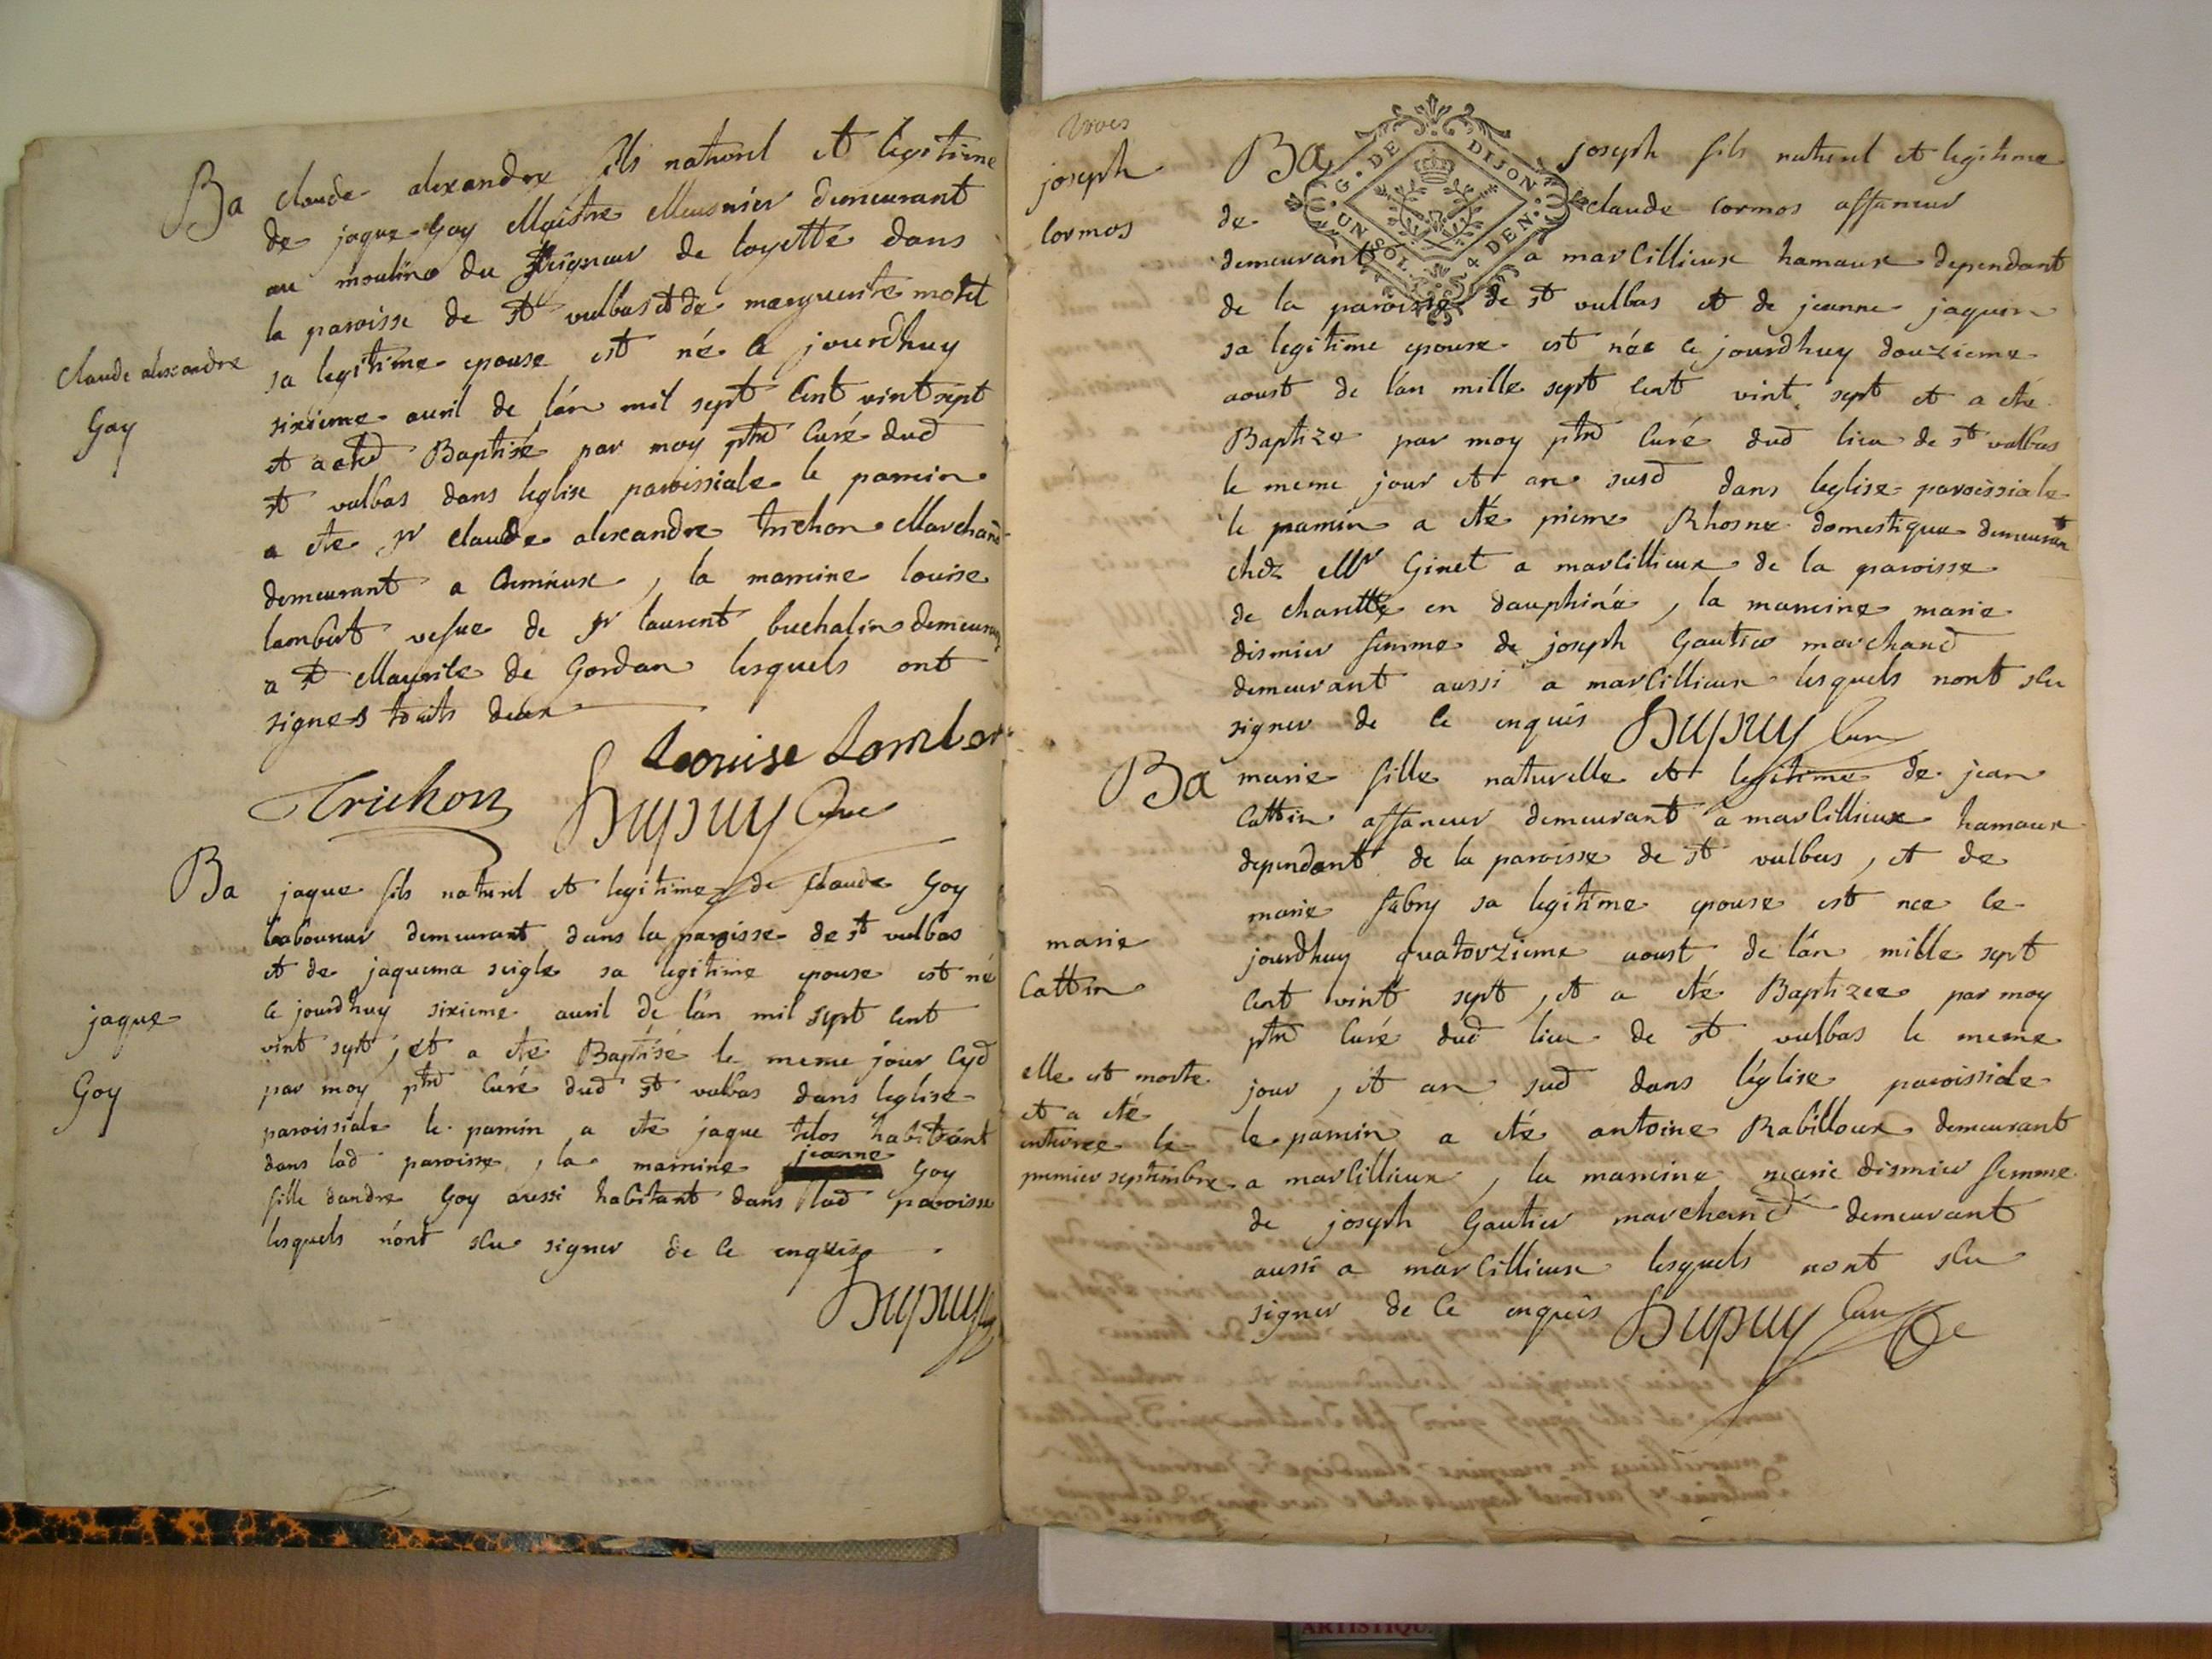 Ba claude alexandre fils naturel et legitime
de jaque Goy Maistre Meusnier demeurant
au moulins du seigneur de loyette dans
la paroisse de st vulbas et de marguerite
claude alexandre
Goy
sa legitime epouse est né ce jourdhuy
sixieme avril de lán mil sept cent vint sept
et a eté Baptisé par moy ptre Curé dud
st vulbas dans leglise paroissiale le parrin
a ete sr claude alexandre trichon Marchand
demeurant a , la marrine louise
lambert vefue de sr laurent buchalin demeurant
a st Maurite de Gordan lesquels ont
signes touts deux
Louise Lambert
Trichon Dupuy Cure
Ba jaque fils naturel et legitime de claude Goy
laboureur demeurant dans la paroisse de st vulbas
et de jaquema seigle sa legitime epouse est né
jaque
Goy
ce jourdhuy sixieme avril de lán mil sept cent
vint sept, et a ete Baptisé le meme jour
par moy ptre Curé dud st vulbas dans leglise
paroissiale le parrin a ete jaque habitant
dans lad paroisse, la marrine jeanne Goy
fille dandre Goy aussi habitant dans lad paroisse
lesquels nónt sceu signer de ce enquis
Dupuy
joseph
Cormos
G. DE DIJON
UN SOL. 4 DEN.
Ba joseph fils naturel et legitime
de claude Cormos affaneur
demeurant a marcillieux hamaux dependant
de la paroisse de st vulbas et de jeanne jaquin
sa legitime epouse est née ce jourdhuy douzieme
aoust de lán mille sept cent vint sept et a eté
Baptize par moy ptre Curé dud lieu de st vulbas
le meme jour et an susd dans leglise paroissiale
le parrin a eté pierre Rhosne domestique demeurant
chez Mr Ginet a marcillieux de la paroisse
de charette en dauphiné, la marrine marie
dismier femme de joseph Gautier marchand
demeurant aussi a marcillieux lesquels nont sceu
signer de ce enquis Dupuy Cure
Ba marie fille naturelle et legitime de jean
Cattin affaneur demeurant a marcillieux hamaux
dependant de la paroisse de st vulbas, et de
marie fabry sa legitime epouse est nee ce
marie
Cattin
jourdhuy quatorzieme aoust de lán mille sept
cent vint sept, et a eté Baptizee par moy
ptre Curé dud lieu de st vulbas le meme
elle est morte
et a eté
enterree le
premier septembre
jour, et an sud dans léglise paroissiale
le parrin a eté antoine Rabilloux demeurant
a marcillieux, la marrine marie dismier femme
de joseph Gautier marchand demeurant
aussi a marcillieux lesquels nont sceu
signer de ce enquis Dupuy Cure
ARTISTIQU